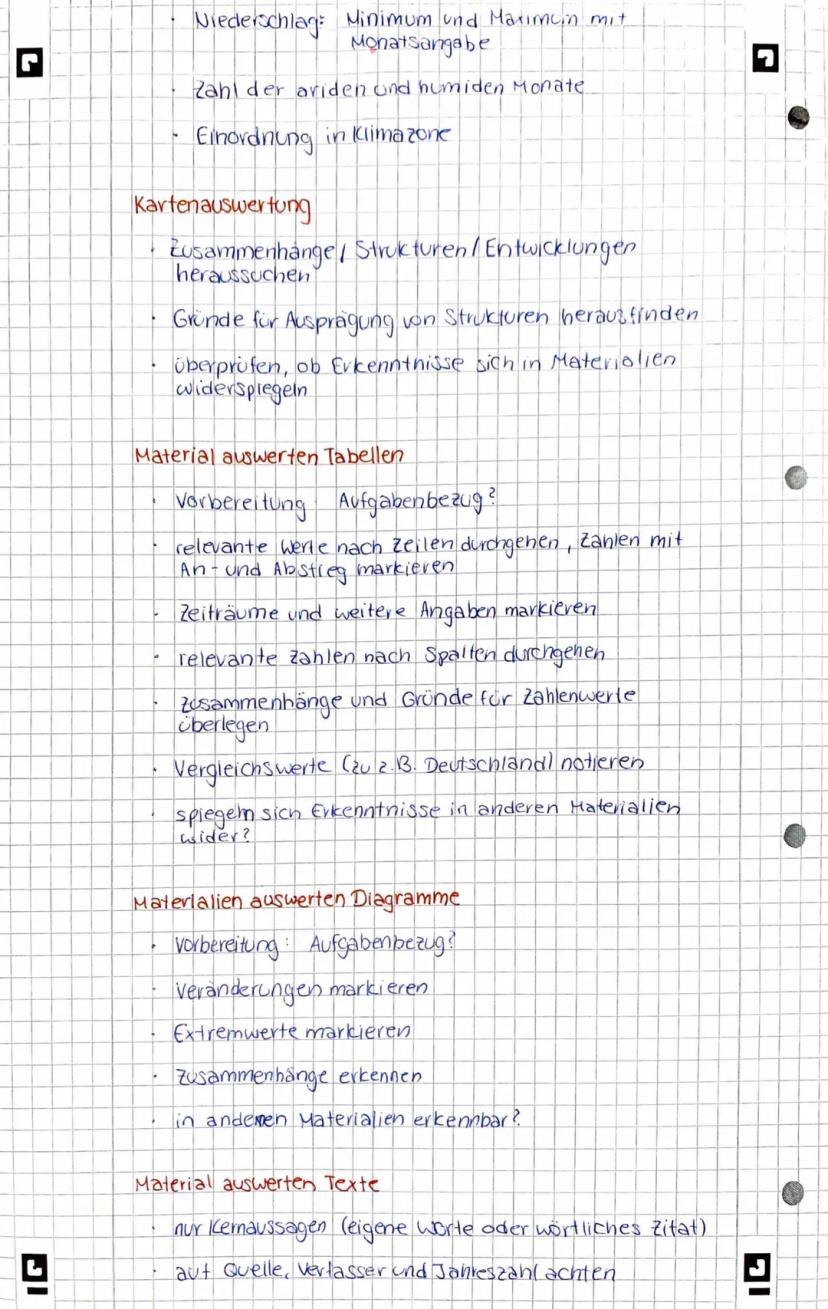 · Niederschlag: Minimum und Maximum mit
Monatsangabe
· Zahl der ariden und humiden Monate
· Einordnung in Klimazone
Kartenauswertung
· Zusammenhänge / Strukturen / Entwicklungen
heraussuchen
· Gründe für Ausprägung von Strukturen herausfinden
· überprüfen, ob Erkenntnisse sich in Materialien
widerspiegeln
Material auswerten Tabellen
· Vorbereitung: Aufgabenbezug?
· relevante Werte nach Zeilen durchgehen, Zahlen mit
An- und Abstieg markieren
· Zeiträume und weitere Angaben markieren
· relevante Zahlen nach Spalten durchgehen
· Zusammenhänge und Gründe für Zahlenwerte
überlegen
· Vergleichswerte (zu z.B. Deutschland) notieren
· spiegeln sich Erkenntnisse in anderen Materialien
wider?
Materialien auswerten Diagramme
· Vorbereitung: Aufgabenbezug?
· Veränderungen markieren
· Extremwerte markieren
· Zusammenhänge erkennen
· in anderen Materialien erkennbar?
Material auswerten Texte
· nur Kernaussagen (eigene Worte oder wörtliches Zitat)
· auf Quelle, Verfasser und Jahreszahl achten